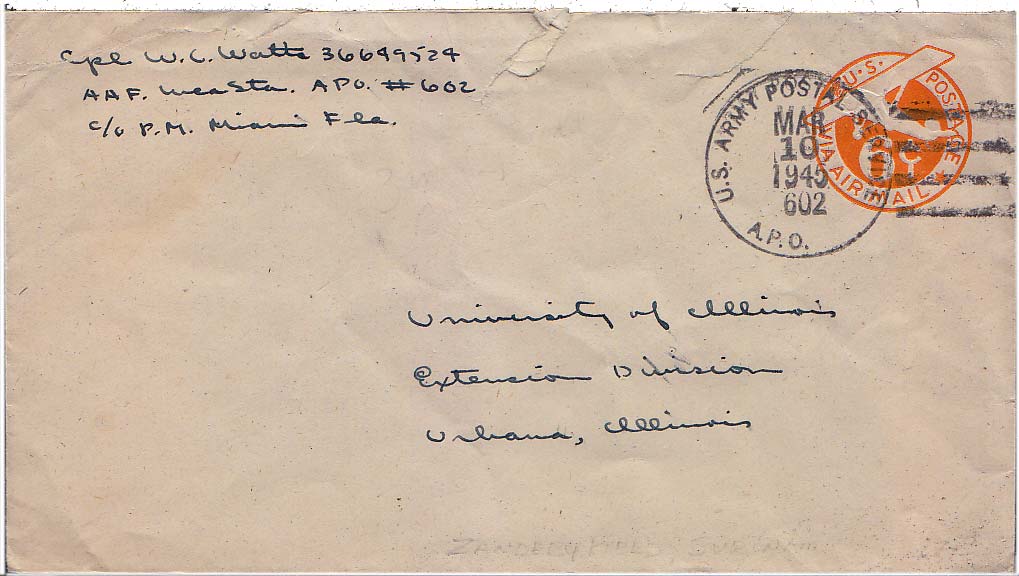 Cpl W.C. Watts 36649524
AAF. Wea Sta. APO. #602
c/o P.M. Miami Fla.
U.S. ARMY POSTAL SERVICE
MAR
10
1945
602
A.P.O.
U.S. POSTAGE
6¢
VIA AIR MAIL
University of Illinois
Extension Division
Urbana, Illinois
ZANDERY FIELD SURINAM